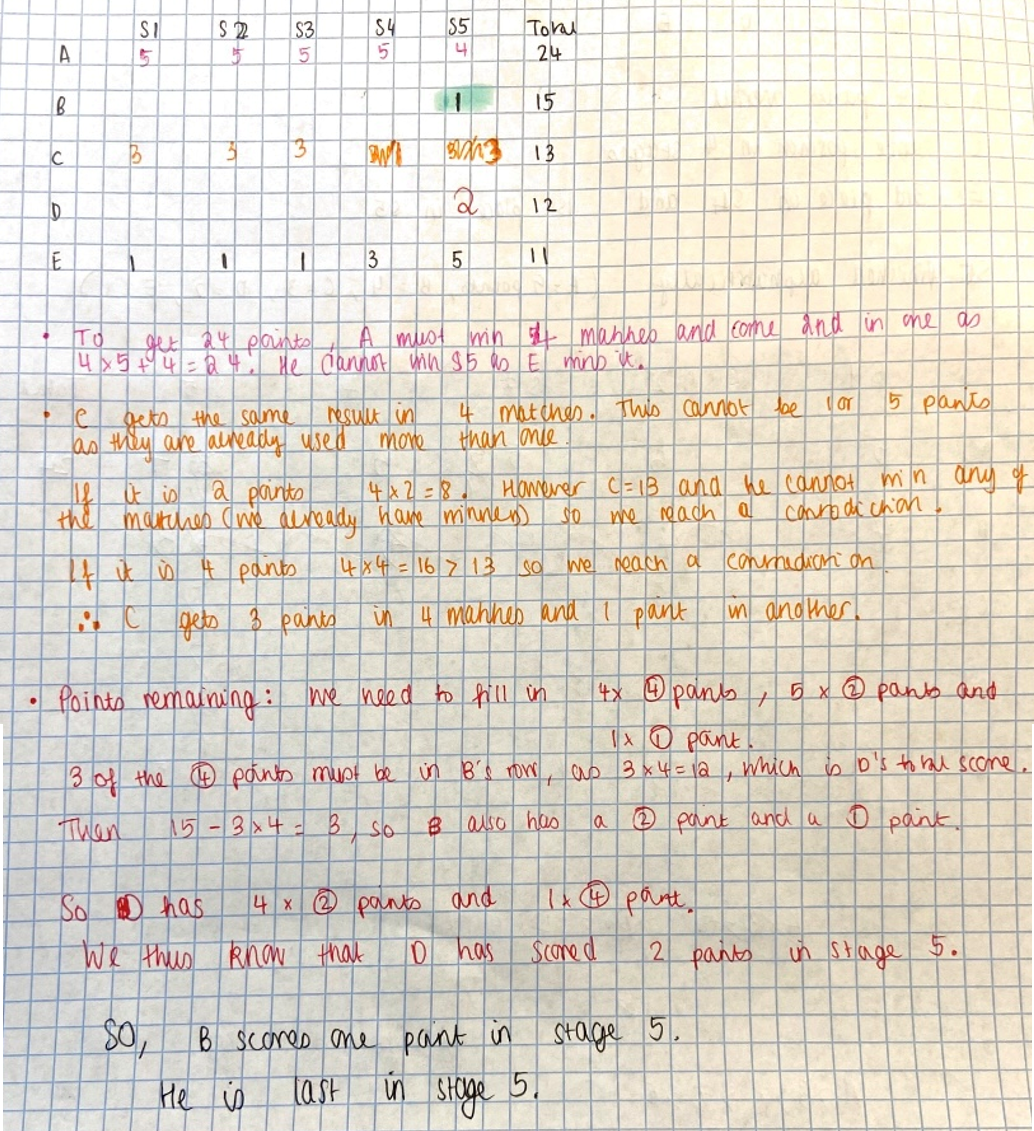 S1 S2 S3 S4 S5 Total
A 5 5 5 5 4 24
B 1 15
C 3 3 3 1 3 13
D 2 12
E 1 1 1 3 5 11
• To get 24 points, A must win 4 matches and come 2nd in one as
4×5+4=24. He cannot win S5 as E wins it.
• C gets the same result in 4 matches. This cannot be 1 or 5 points
as they are already used more than once.
If it is 2 points 4×2=8. However C=13 and he cannot win any of
the matches (we already have winners) so we reach a contradiction.
If it is 4 points 4×4=16>13 so we reach a contradiction
∴ C gets 3 points in 4 matches and 1 point in another.
• Points remaining: we need to fill in 4× ④ points, 5 × ② points and
1× ① point.
3 of the ④ points must be in B's row, as 3×4=12, which is D's total score.
Then 15-3×4=3, so B also has a ② point and a ① point.
So D has 4 × ② points and 1× ④ point.
We thus know that D has scored 2 points in stage 5.
So, B scores one point in stage 5.
He is last in stage 5.